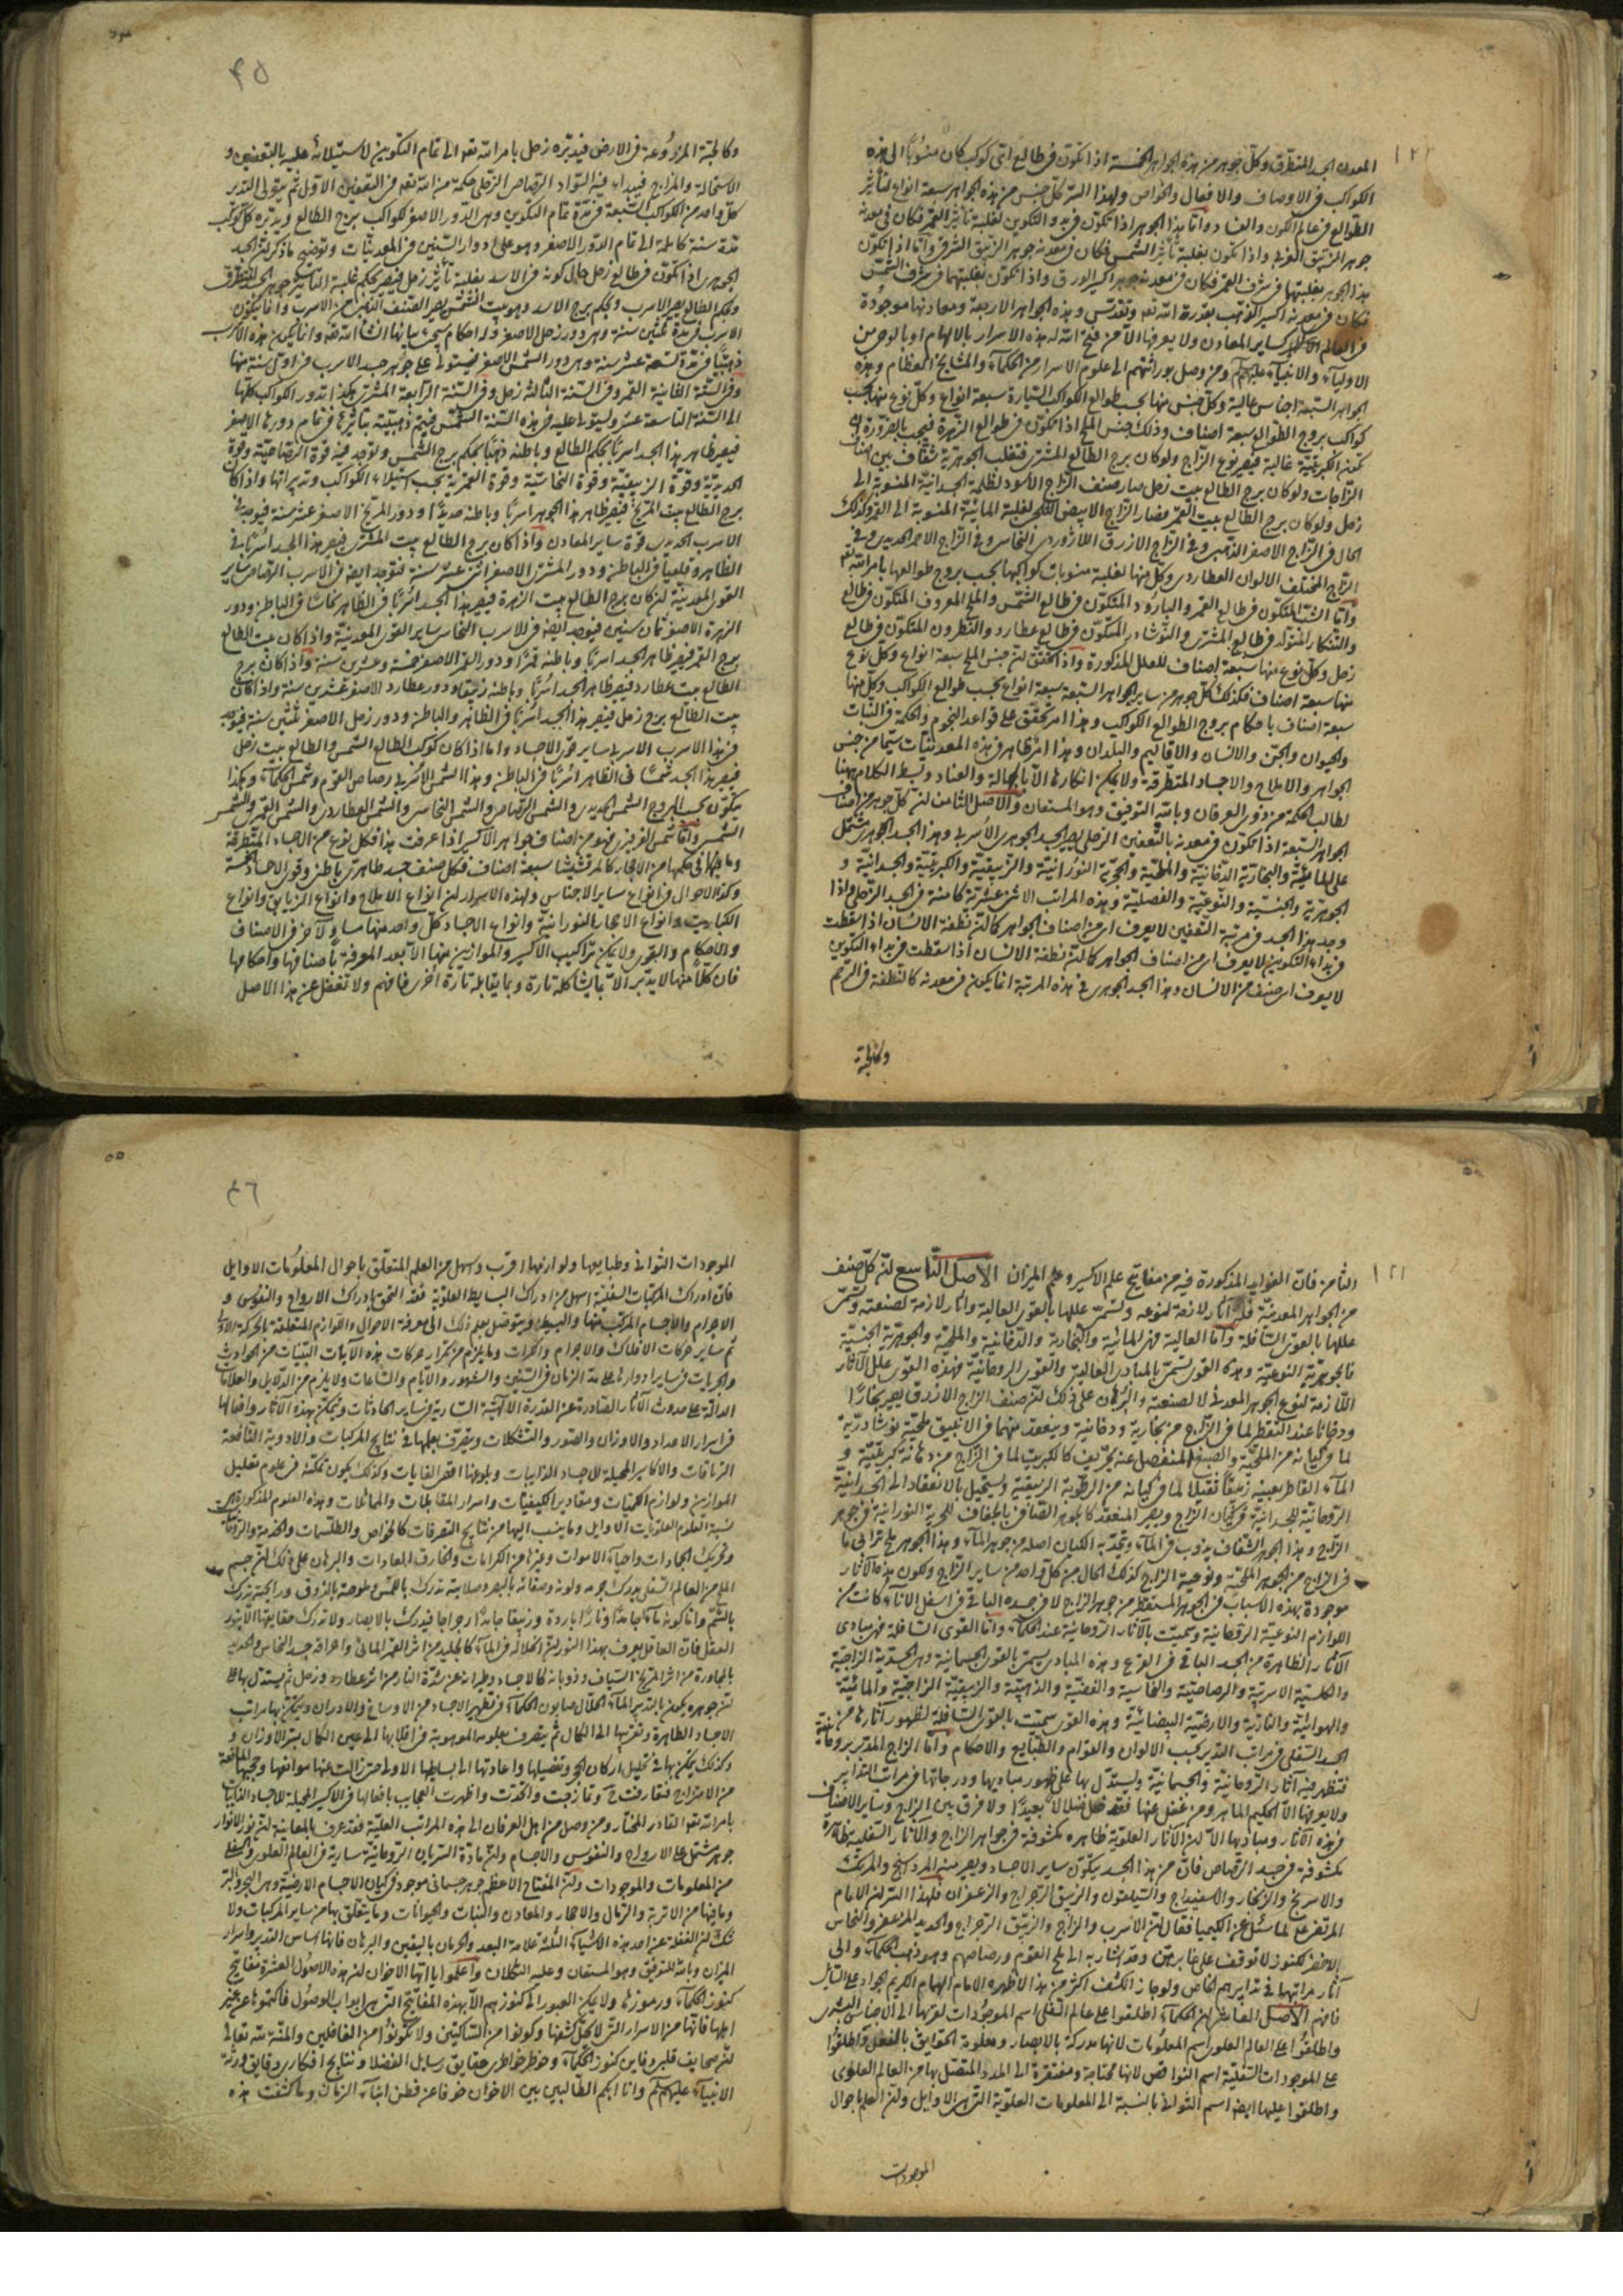 المعدن الجسد المنطرق وكل جوهر من هذه الجواهر الخمسة اذا تكون فى طالع اى كوكب كان منسوبا الى هذه
الكواكب فى الاوصاف والافعال والخواص ولهذا السر كل جنس من هذه الجواهر سبعة انواع لتأثير
الطوالع فى عالم الكون والفساد واما هذا الجوهر اذا تكون فريد والتكوين لغلبة تأثير القمر فكان فى معدنه
جوهر الزيبق الغربى واذا تكون بغلبة تأثير الشمس فكان فى معدنه جوهر الزيبق الشرقى واما اذا تكون
هذا الجوهر بغلبتهما فى شرف القمر فكان فى معدنه جوهر اكسير الورق واذا تكون بغلبتهما فى شرف الشمس
فكان فى معدنه اكسير الذهب بقدرة الله تعالى وتقدس وهذه الجواهر الاربعة ومعادنها موجودة
فى العالم كساير المعادن ولا يعرفها الا من فتح الله له هذه الاسرار بالالهام او بالوحى من
الاولياء والانبياء عليهم السلم ومن وصل بوراثتهم الى علوم الاسرار من الحكماء والمشايخ العظام وهذه
الجواهر السبعة اجناس عالية وكل جنس منها بحسب طوالع الكواكب السيارة سبعة انواع وكل نوع منها بحسب
كواكب بروج الطوالع سبعة اصناف وذلك جنس الملح اذا تكون فى طوالع الزهرة فيجب بالضرورة ان
تكون الكبريتية غالبة فيصير نوع الزاج ولو كان برج الطالع المشترى فتغلب الجوهرية شفاف بين اصناف
الزاجات ولو كان برج الطالع بيت زحل صار صنف الزاج الاسود لظلمة الجسدانية المنسوبة الى
زحل ولو كان برج الطالع بيت القمر فصار الزاج الابيض القلقى لغلبة المائية المنسوبة الى القمر وكذلك
الحال فى الزاج الاصفر الذهبى وفى الزاج الازرق اللازوردى النحاس وفى الزاج الاحمر الحديدى وفى
الزاج المختلف الالوان العطاردى وكل منها لغلبة منسوبات كواكبها بحسب بروج طوالعها بامر الله تعالى
واما الشب المتكون فى طالع القمر والبارود المتكون فى طالع الشمس والملح المعروف المتكون فى طالع
والتنكار المتولد فى طالع المشترى والنوشادر المتكون فى طالع عطارد والنطرون المتكون فى طالع
زحل وكل نوع منها سبعة اصناف للعلل المذكورة واذا تحقق ان جنس الملح سبعة انواع وكل نوع
منها سبعة اصناف فكذلك كل جوهر من ساير الجواهر السبعة سبعة انواع بحسب طوالع الكواكب وكل منها
سبعة اصناف باحكام بروج الطوالع الكواكب وهذا امر تحقق على قواعد النجوم والحكمة فى النبات
والحيوان والجن والانسان والاقاليم والبلدان وهذا امر ظاهر فى هذه المعدنيات سيما من جنس
الجواهر والاملاح والاجساد المتطرقة ولا يمكن انكارها الا بالجهالة والعناد وبسط الكلام ههنا
لطالب الحكمة من ذوى العرفان وبالله التوفيق وهو المستعان والاصل الثامن ان كل جوهر من اصناف
الجواهر السبعة اذا تكون فى معدنه بالتعفين الزحلى يصير الجسد الجوهرى الاسربى وهذا الجسد الجوهرى مشتمل
على المائية والبخارية الدخانية والملحية والحجرية النورانية والزيبقية والكبريتية والجسدانية و
الجوهرية والجنسية والنوعية والفصلية وهذه المراتب الاثنى عشرية كامنة فى الجسد الزحلى واذا
وجد هذا الجسد فى مرتبة التعفين لا يعرف اى من اصناف الجواهر كما ان نطفة الانسان اذا سقطت
فى بداء التكوين لا يعرف اى من اصناف الجواهر كما ان نطفة الانسان اذا سقطت فى بداء التكوين
لا يعرف اى صنف من الانسان وهذا الجسد الجوهرى فى هذه المرتبة انما يكون فى معدنه كالنطفة فى الرحم
وكالحبة
٤٥
وكالحبة المزروعة فى الارض فيدبره زحل بامر الله تعالى الى تمام التكوين لاستيلائه عليه بالتعفين و
الاستحالة والمزاج فيبداء فيه السواد الرصاص الزحلى حكمة من الله تعالى فى التعفين الاول ثم يتولى التدبير
كل واحد من الكواكب السبعة فى مدة تمام التكوين وهى الدور الاصغر لكواكب برج الطالع ويدبره كل كوكب
مدة سنة كاملة الى تمام الدور الاصغر وهو على ادوار السنين فى المعدنيات وتوضيح ما ذكر ان الجسد
الجوهرى اذا تكون فى طالع زحل حال كونه فى الاسد بغلبة تأثير زحل فيصير بحكم غلبة التأثير جوهر الجسد المنطرق
وبحكم الطالع يصير الاسرب وبحكم برج الاسد وهو بيت الشمس يصير الصنف الذهبى من الاسرب وانما يتكون
الاسرب فى مدة ثلثين سنة وهى دور زحل الاصغر وله احكام يجىء بيانها انشاء الله تعالى وانما يكون هذه الاسرب
ذهبيا فى مدة تسعة عشر سنة وهى دور الشمس الاصغر فيستولى على جوهر جسد الاسرب فى اول سنة منها
وفى السنة الثانية القمر وفى السنة الثالثة زحل وفى السنة الرابعة المشترى هكذا تدور الكواكب كلها
الى السنة التاسعة عشر ويستولى عليه فى هذه السنة الشمس فيتم ذهبيته بتأثيرها فى تمام دورها الاصغر
فيصير ظاهر هذا الجسد اسربا بحكم الطالع وباطنه ذهبا بحكم برج الشمس ويوجد فيه قوة الرصاصية وقوة
الحديدية وقوة الزيبقية وقوة النحاسية وقوة القمرية بحسب استيلاء الكواكب وتدبيراتها واذا كان
برج الطالع بيت المريخ فيصير ظاهر هذا الجوهر اسربا وباطنه حديدا ودور المريخ الاصغر خمس عشر سنة فيوجد فى
الاسرب الحديدى قوة ساير المعادن واذا كان برج الطالع بيت المشترى فيصير هذا الجسد اسربا فى
الظاهر وقلعيا فى الباطن ودور المشترى الاصغر اثنى عشر سنة فتوجد ايضا فى الاسرب الرصاص ساير
القوى المعدنية ان كان برج الطالع بيت الزهرة فيصير هذا الجسد اسربا فى الظاهر نحاسا فى الباطن ودور
الزهرة الاصغر ثمان سنين فيوجد ايضا فى الاسرب النحاس ساير القوى المعدنية واذا كان بيت الطالع
برج القمر فيصير ظاهر الجسد اسربا وباطنه قمرا ودور القمر الاصغر خمسة وعشرين سنة واذا كان برج
الطالع بيت عطارد فيصير ظاهر الجسد اسربا وباطنه زيبقا ودور عطارد الاصغر عشرين سنة واذا كان
بيت الطالع برج زحل فيصير هذا الجسد اسربا فى الظاهر والباطن ودور زحل الاصغر ثلثين سنة فيوجد
فى هذا الاسرب الاسربى ساير قوى الاجساد واما اذا كان كوكب الطالع الشمس والطالع بيت زحل
فيصير هذا الجسد شمسا فى الظاهر اسربا فى الباطن وهذا الشمس الاسربى رصاص القوم وشمس الحكماء وهكذا
يتكون بحسب البروج الشمس الحديدى والشمس الرصاص والشمس النحاسى والشمس العطاردى والشمس القمرى والشمس
الشمسى واما شمس الغربى فهو من اصناف جواهر الاكسير اذا عرفت هذا فكل نوع من الاجساد المتطرقة
وما فى حكمها من الاحجار كالمرقشيشا سبعة اصناف فكل صنف جسد ظاهرى باطنى وقوى الاجساد الخمسة
وكذا الاحوال فى انواع ساير الاجناس ولهذه الاسرار ان انواع الاملاح وانواع الزيابق وانواع
الكباريت وانواع الاحجار النورانية وانواع الاجساد كل واحد منها مساو لاخر فى الاصناف
والاحكام والقوى ولا يمكن تراكيب الاكسير والموازين منها الا بعد المعرفة باصنافها واحكامها
فان كلا منها لا يدبر الا بما يشاكله تارة وبما يقابله تارة اخرى فافهم ولا تغفل عن هذا الاصل
الثامن فان الفوايد المذكورة فيه من مفاتيح علم الاكسير وعلم الميزان الاصل التاسع ان كل صنف
من الجواهر المعدنية فله آثار لازمة لنوعه وتسمى عللها بالقوى العالية وآثار لازمة لصنعته وتسمى
عللها بالقوى السافلة واما العالية فهى المائية والبخارية والدخانية والملحية والجوهرية الجنسية
فالجوهرية النوعية وهذه القوى تسمى بالمبادى العالية والقوى الروحانية فهذه القوى علل الآثار
اللازمة لنوع الجوهر المعدنى لا لصنعته والبرهان على ذلك ان صنف الزاج الازرق يصير بخارا
ودخانا عند التقطير لما فى الزاج من بخارية ودخانية وينعقد منهما فى الانبيق ملحية نوشادرية
لما فى كيانه من الملحية والصبغ المنفصل عنه حريف كالكبريت لما فى الزاج من دخانية كبريتية و
الماء القاطر بعينه زيبقا ثقيلا لما فى كيانه من الرطوبة الزيبقية ويستحيل بالانعقاد الى الجسدانية
الروحانية للجسدانية فى كيان الزاج ويصير المنعقد كالجوهر الصافى بالجفاف للحجرية النورانية فى جوهر
الزاج وهذا الجوهر الشفاف يذوب فى الماء ويتحد به الكيان اصله من جوهر الماء وهذا الجوهر ملح ترابى ما
فى الزاج من الجوهر الملحية ونوعية الزاج كذلك الحال من كل واحد من ساير الزاج ولكون هذه الآثار
موجودة بهذه الاسباب فى الجوهر المستقطر من جوهر الزاج لا فى جسده الباقى فى اسفل الاناء كانت من
اللوازم النوعية الروحانية وسميت بالآثار الروحانية عند الحكماء واما القوى السافلة فهى مبادى
الآثار الظاهرة من الجسد الباقى فى القرع وهذه المبادى يسمى بالقوى الجسمانية وهى الجسدية الزاجية
والكلسية الاسربية والرصاصية والنحاسية والفضية والذهبية والزيبقية الزاجية والمائية
والهوائية والنارية والارضية البيضائية وهذه القوى سميت بالقوى السافلة لظهور آثارها من
الجسد السفلى فى مراتب التدبير بحسب الالوان والقوام والطبايع والاحكام واما الزاج المدبر بروحانية
فتظهر فيه آثار الروحانية والجسمانية ويستدل بها على ظهور مباديها ودرجاتها فى مراتب التدابير
ولا يعرفها الا الحكيم الماهر ومن غفل عنها فقد ضل ضلالا بعيدا ولا فرق بين الزاج وساير الاصناف
فى هذه الآثار ومباديها الا ان الآثار العلوية ظاهره مكشوفة فى جواهر الزاج والآثار السفلية ظاهرة
مكشوفة فى جسد الرصاص فان من هذا الجسد يتكون ساير الاجساد ويصير منه المرداسنج والمرتك
والاسرنج والزنجار والاسفيداج والسيلقون والزيبق الزجاج والزعفران فلهذا السر ان الامام
المرتضى على لما سئل عن الكيميا فقال ان فى الاسرب والزاج والزيبق الرجراج والحديد المزعفر والنحاس
الاخضر لكنوز لا توقف على غابرهن وقد اشار به الى ملح القوم ورصاصهم وهو ذهب الحكماء والى
آثار مراتبها فى تدابيرهم الخاص ولو جاز الكشف اكثر من هذا لاظهره الامام الهمام الكريم الجواد على السائل
فافهم الاصل العاشر ان الحكماء اطلقوا على عالم السفلى اسم الموجودات لقربها الى الاحساس البشرى
واطلقوا على العالم العلوى اسم المعلومات لانها مدركة بالابصار ومعلومة الحقايق بالعقل واطلقوا
على الموجودات السفلية اسم النواقص لانها محتاجة ومفتقرة الى المدد المتصل بها من العالم العلوى
واطلقوا عليها ايضا اسم الثوانى بالنسبة الى المعلومات العلوية التى هى الاوايل ولان العلم باحوال
الموجودات
٤٦
الموجودات الثوانى وطبايعها ولوازمها اقرب واسهل من العلم المتعلق باحوال المعلومات الاوايل
فان ادراك المركبات السفلية اسهل من ادراك البسايط العلوية فقد التحق بادراك الارواح والنفوس و
الاجرام والاجسام المركب منها والبسيط ويتوصل بعلم ذلك الى معرفة الاحوال واللوازم المتعلقة بالحركة الاولى
ثم ساير حركات الافلاك والاجرام والكرات وما يلزم من تكرار حركات هذه الآيات البينات من الحوادث
والجريات فى ساير ادوارها على مدة الزمان فى السنين والشهور والايام والساعات ولا يلزم من الدلايل والعلامات
الدالة على حدوث الآثار الصادرة عن القدرة الالهية السارية فى ساير الحادثات وتمكن بهذه الآثار وافعالها
فى اسرار الاعداد والاوزان والصور والتشكلات وتصرف بعلمها فى نتايج المركبات والادوية النافعة
الترياقات والاكاسير المحيلة للاجساد الذايبات وبلوغها اقصى الغايات وكذلك يكون تمكنه فى علوم تحليل
الموازين ولوازم الكميات ومقادير الكيفيات واسرار المقابلات والمماثلات وهذه العلوم المذكورة
نسبة العلوم العلويات الاوايل وما ينسب اليها من نتايج التصرفات كالخواص والطلسمات والخدمة والروحانية
وتحريك الجمادات واحياء الاموات وغيرها من الكرامات والخارق العادات والبرهان على ذلك ان جسم
الملح من العالم السفلى يدرك جرمه ولونه وصفائه بالبصر وصلابته تدرك باللمس وطعمه بالذوق ورايحته تدرك
بالشم واما كونه ماء جامدا ونارا باردة وزيبقا جامدا رجراجا فيدرك بالابصار ولا تدرك حقايقها الا بنور
العقل فان العاقل يعرف بهذا النور ان انحلاله فى الماء كالجليد من اثر القمر المائى واحراقه جسد النحاس والحديد
بالمجاورة من اثر المريخ السياف وذوبانه كالاجساد وطيرانه عن شدة النار من اثر عطارد وزحل ثم يستدل بها على
ان جوهره يكون بالتدبير الماء الحلال صابون الحكماء فى تطهير الاجساد من الاوساخ والادران ويمكن بها مراتب
الاجساد الطاهرة وتقربها الى الكمال ثم يتصرف بعلومه الموهوبة فى اقلابها الى عين الكمال بسر الاوزان و
وكذلك يمكن بها فى تحليل اركان الحجر وتفصيلها واعادتها الى بسايطها الاولى حتى زالت عنها موانعها وحجبها المانعة
من الامتزاج فتعارفت وتمازجت واتحدت واظهرت العجايب بافعالها فى الاكسير المحيلة للاجساد الذايبات
بامر الله تعالى القادر المختار ومن وصل من اهل العرفان الى هذه المراتب العلية فقد عرف بالمعاينة ان نور الانوار
جوهر مشتمل على الارواح والنفوس والاجسام وان مادة السريان الروحانية سارية فى العالم العلوى والسفلى
من المعلومات والموجودات وان المفتاح الاعظم جوهر جسمانى موجود فى كيان الاجسام الارضية وهى البحر والبر
وما فيها من الاتربة والرمال والاحجار والمعادن والنبات والحيوانات وما يتعلق بها من ساير المركبات ولا
شك ان الغفلة عن احد هذه الاشياء الثلثة علامة البعد والحرمان باليقين والبرهان فانها اساس التدبير واسرار
الميزان وبالله التوفيق وهو المستعان وعليه التكلان واعلموا يا ايها الاخوان ان هذه الاصول العشرة مفاتيح
كنوز الحكماء ورموزها ولا يمكن العبور الى كنوزهم الا بهذه المفاتيح التى هى ابواب الوصول فاكتموها عن غير
اهلها فانها من الاسرار التى لا يحل كشفها وكونوا من الساكتين ولا تكونوا من الغافلين والمنة لله تعالى
ان صحايف قلبى دفاين كنوز الحكماء وخواطرى حقايق رسايل الفضلا ونتايج افكارى دقايق ورثة
الانبياء عليهم السلم وانا ابكم الطالبين بين الاخوان خوفا عن فطن ابناء الزمان وما كشفت هذه